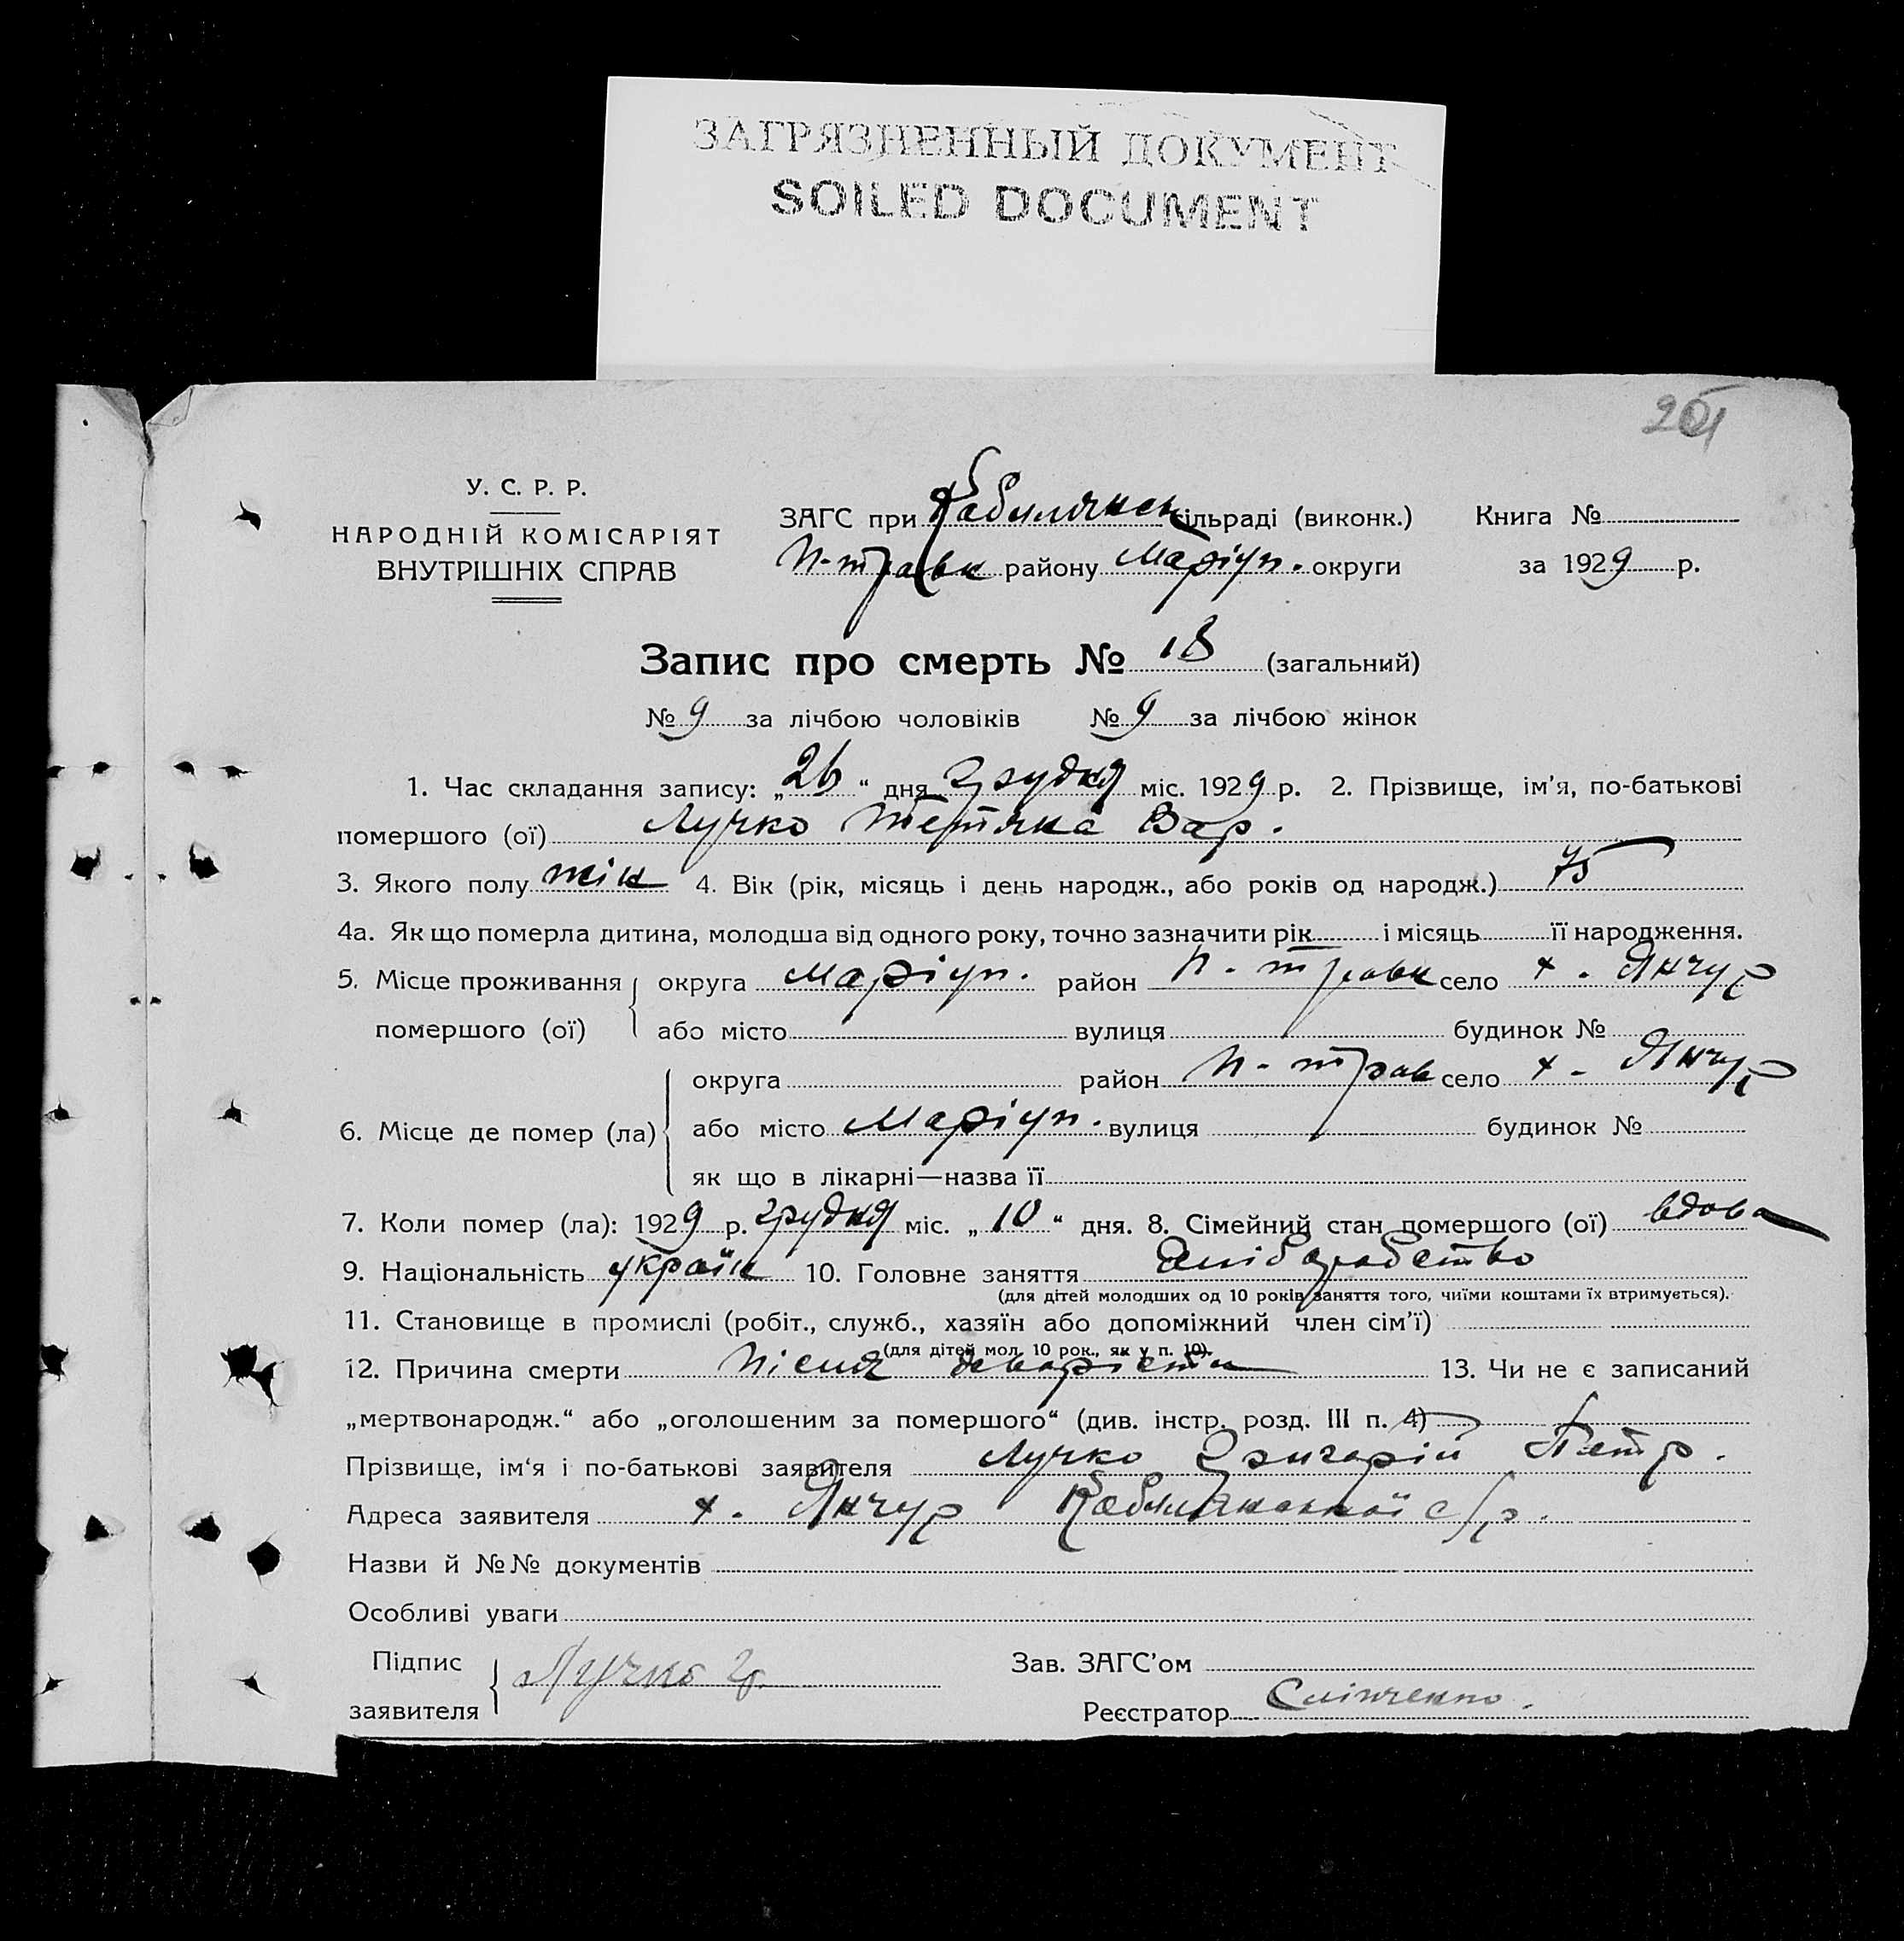 ЗАГРЯЗНЕННЫЙ ДОКУМЕНТ
SOILED DOCUMENT
201
У. С. Р. Р.
НАРОДНІЙ КОМІСАРІЯТ
ВНУТРІШНІХ СПРАВ
ЗАГС при Кобилянск сільраді (виконк.)
П-травн району Маріуп. округи
Книга №
за 1929 р.
Запис про смерть № 18 (загальний)
№ 9 за лічбою чоловіків № 9 за лічбою жінок
1. Час складання запису: „26“ дня грудня міс. 1929 р. 2. Прізвище, ім'я, по-батькові
помершого (ої) Лучко Тетяна Вар.
3. Якого полу жін 4. Вік (рік, місяць і день народж., або років од народж.) 75
4а. Як що померла дитина, молодша від одного року, точно зазначити рік і місяць її народження.
5. Місце проживання помершого (ої) округа Маріуп. район П-травн село х. Янчур
або місто вулиця будинок №
6. Місце де помер (ла) округа район П-трав село х- Янчур
або місто Маріуп. вулиця будинок №
як що в лікарні—назва її
7. Коли помер (ла): 1929 р. грудня міс. „10“ дня. 8. Сімейний стан помершого (ої) вдова
9. Національність україн 10. Головне заняття хліборобство
(для дітей молодших од 10 років заняття того, чиїми коштами їх втримується).
11. Становище в промислі (робіт., служб., хазяїн або допоміжний член сім'ї)
(для дітей мол. 10 рок., як у п. 10).
12. Причина смерти після старости 13. Чи не є записаний
„мертвонародж.“ або „оголошеним за помершого“ (див. інстр. розд. III п. 4)
Прізвище, ім'я і по-батькові заявителя Лучко Григорій Петр.
Адреса заявителя х. Янчур Кобилянської с/р.
Назви й №№ документів
Особливі уваги
Підпис заявителя Лучко Г.
Зав. ЗАГС'ом
Реєстратор